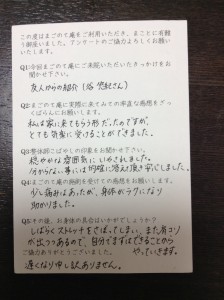 この度はまごのて庵をご利用いただき、まことに有難
う御座いました。アンケートのご協力よろしくお願い
します。
Q1今回まごのて庵にご来院いただいたきっかけをお
聞かせ下さい。
友人からの紹介
Q2まごのて庵に実際に来てみての率直な感想をざっ
くばらんにお願いします。
私は家に来てもらう形だったのですが、
とても気楽に受けることができました。
Q3整体師こばやしの印象をお聞かせ下さい。
穏やかな雰囲気でいやされました。
分からない事にも的確に答えて頂き安心しました。
Q4まごのて庵の施術を受けての感想をお願いします。
少し痛みはあったが、身体がラクになり
助かりました。
Q5その後、お身体の具合はいかがでしょうか？
しばらくストレッチをさぼってしまい、また肩コリ
が出つつあるので、自分でまずはできることから
ご協力ありがとうございました。
やっていきます。
遅くなり申し訳ありません。